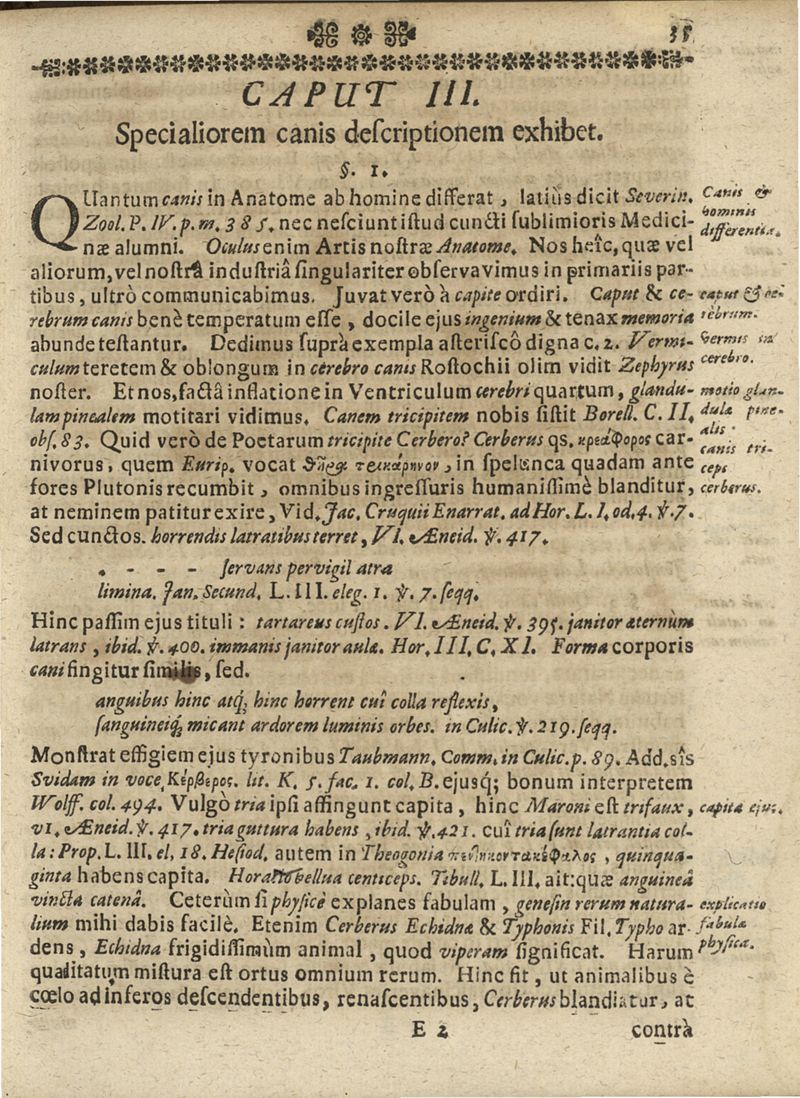 35
CAPUT III.
Specialiorem canis deſcriptionem exhibet.
§. 1.
QUantum canis in Anatome ab homine differat, latiùs dicit Severin.
Zool. P. IV. p. m. 385. nec neſciunt iſtud cuncti ſublimioris Medici-
næ alumni. Oculus enim Artis noſtræ Anatome. Nos heîc, quæ vel
aliorum, vel noſtrâ induſtriâ ſingulariter obſervavimus in primariis par-
tibus, ultrò communicabimus. Juvat verò à capite ordiri. Caput & ce-
rebrum canis benè temperatum eſſe, docile ejus ingenium & tenax memoria
abunde teſtantur. Dedimus ſuprà exempla aſteriſcô digna c. 2. Vermi-
culum teretem & oblongum in cerebro canis Roſtochii olim vidit Zephyrus
noſter. Et nos, factâ inflatione in Ventriculum cerebri quartum, glandu-
lam pinealem motitari vidimus. Canem tricipitem nobis ſiſtit Borell. C. II.
obſ. 83. Quid verò de Poetarum tricipite Cerbero? Cerberus qs. κρεάφορος car-
nivorus, quem Eurip. vocat τρικάρηνον, in ſpelunca quadam ante
fores Plutonis recumbit, omnibus ingreſſuris humaniſſimè blanditur,
at neminem patitur exire, Vid. Jac. Cruquii Enarrat. ad Hor. L. I. od. 4. ℣. 7.
Sed cunctos. horrendis latratibus terret, VI. Æneid. ℣. 417.
. - - - ſervans pervigil atra
limina. Jan. Secund. L. III. eleg. 1. ℣. 7. ſeqq.
Hinc paſſim ejus tituli: tartareus cuſtos. VI. Æneid. ℣. 395. janitor æternùm
latrans, ibid. ℣. 400. immanis janitor aulæ. Hor. III. C. XI. Forma corporis
cani fingitur ſimilis, ſed.
anguibus hinc atq; hinc horrent cuî colla reflexis,
ſanguineiq; micant ardorem luminis orbes. in Culic. ℣. 219. ſeqq.
Monſtrat effigiem ejus tyronibus Taubmann. Comm. in Culic. p. 89. Add. sîs
Svidam in voce Κέρβερος. lit. K. 5. fac. 1. col. B. ejusq; bonum interpretem
Wolff. col. 494. Vulgò tria ipſi affingunt capita, hinc Maroni eſt trifaux,
VI. Æneid. ℣. 417. tria guttura habens, ibid. ℣. 421. cuî tria ſunt latrantia col-
la: Prop. L. III. el, 18. Heſiod. autem in Theogonia πεντηκοντακέφαλος, quinqua-
ginta habens capita. Horatio bellua centiceps. Tibull. L. III. ait: quæ anguineâ
vincta catenâ. Ceterùm ſi phyſicè explanes fabulam, geneſin rerum natura-
lium mihi dabis facilè. Etenim Cerberus Echidna & Typhonis Fil. Typho ar-
dens, Echidna frigidiſſimùm animal, quod viperam ſignificat. Harum
qualitatum miſtura eſt ortus omnium rerum. Hinc fit, ut animalibus è
cœlo ad inferos deſcendentibus, renaſcentibus, Cerberus blandiatur, at
E 2
contrà
Canis &
hominis
differentiæ.
caput & ce-
rebrum.
Vermis in
cerebro.
motio glan-
dulæ pine-
alis.
canis tri-
ceps
cerberus.
capita ejus.
explicatio
fabulæ
phyſica.